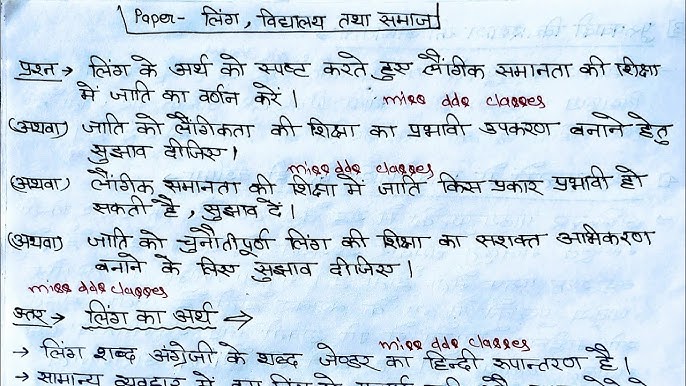 Paper - लिंग, विद्यालय तथा समाज
प्रश्न → लिंग के अर्थ को स्पष्ट करते हुए लैंगिक समानता की शिक्षा
में जाति का वर्णन करें।
miss ddr classes
(अथवा) जाति को लैंगीकता की शिक्षा का प्रभावी उपकरण बनाने हेतु
सुझाव दीजिए।
miss ddr classes
(अथवा) लैंगीक समानता की शिक्षा में जाति किस प्रकार प्रभावी हो
सकती है, सुझाव दें।
(अथवा) जाति को चुनौतीपूर्ण लिंग की शिक्षा का सशक्त अभिकरण
बनाने के लिए सुझाव दीजिए।
miss ddr classes
उत्तर → लिंग का अर्थ →
miss ddr classes
→ लिंग शब्द अंग्रेजी के शब्द जेण्डर का हिन्दी रूपान्तरण है।
→ सामान्य व्यवहार में